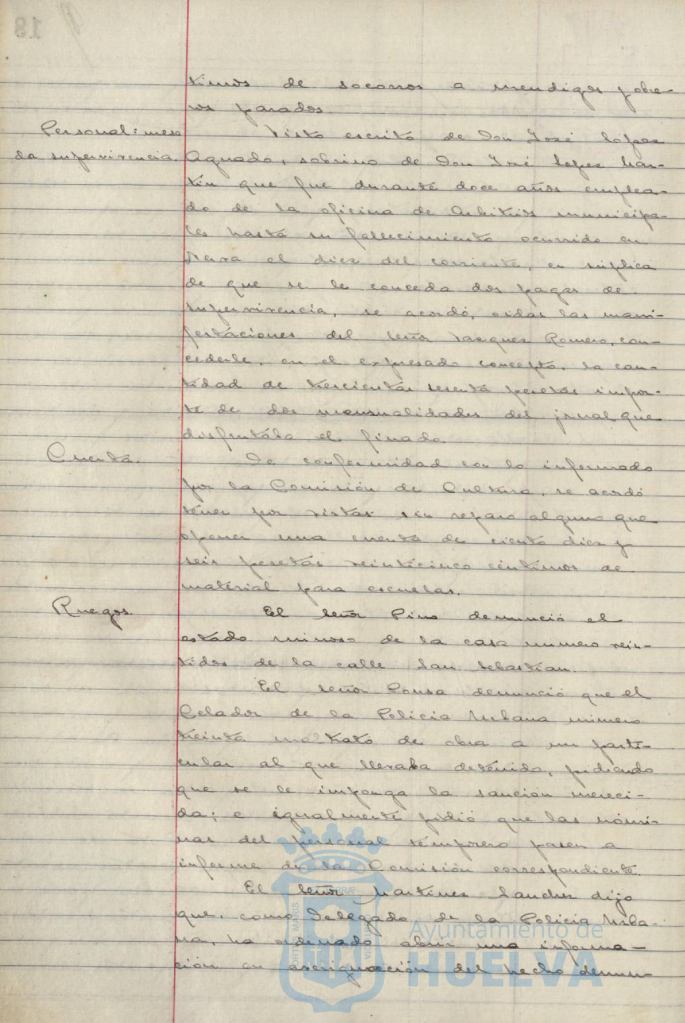 timos de socorros a mendigos y obre-
ros parados.
Personal: mesa-
da supervivencia.
Visto escrito de Don José López
Aguado, sobrino de Don José López Mar-
tín que fue durante doce años emplea-
do de la oficina de Arbitrios municipa-
les hasta su fallecimiento ocurrido en
el diez del corriente, en súplica
de que se le conceda dos pagas de
supervivencia, se acordó, oidas las mani-
festaciones del señor Vazquez Romero, con-
cederle, en el expresado concepto, la can-
tidad de trescientas sesenta pesetas impor-
te de dos mensualidades del jornal que
disfrutaba el finado.
Cuenta.
De conformidad con lo informado
por la Comisión de Cultura, se acordó
tener por vistas sin reparo alguno que
oponer una cuenta de ciento diez y
seis pesetas veinticinco céntimos de
material para escuelas.
Ruegos.
El señor Pino denunció el
estado ruinoso de la casa numero vein-
tidos de la calle San Sebastián.
El señor Ponsa denunció que el
Celador de la Policia Urbana número
treinta maltrató de obra a un parti-
cular al que llevaba detenido, pidiendo
que se le imponga la sanción mereci-
da; e igualmente pidió que las nómi-
nas del personal temporero pasen a
informe de la Comisión correspondiente.
El señor Martinez Sanchez dijo
que, como Delegado de la Policia Urba-
na, ha ordenado abrir una informa-
ción en averiguación del hecho denun-
Ayuntamiento de
HUELVA